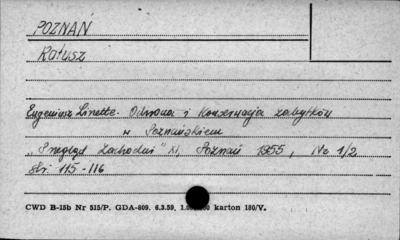 POZNAŃ
Ratusz
Eugeniusz Linette. Odnowa i Konserwacja zabytków
w Poznańskiem
„Przegląd Zachodni" XI, Poznań 1955, Nr 1/2
str. 115-116
CWD B-15b Nr 515/P. GDA-809. 6.3.59. karton 180/V.